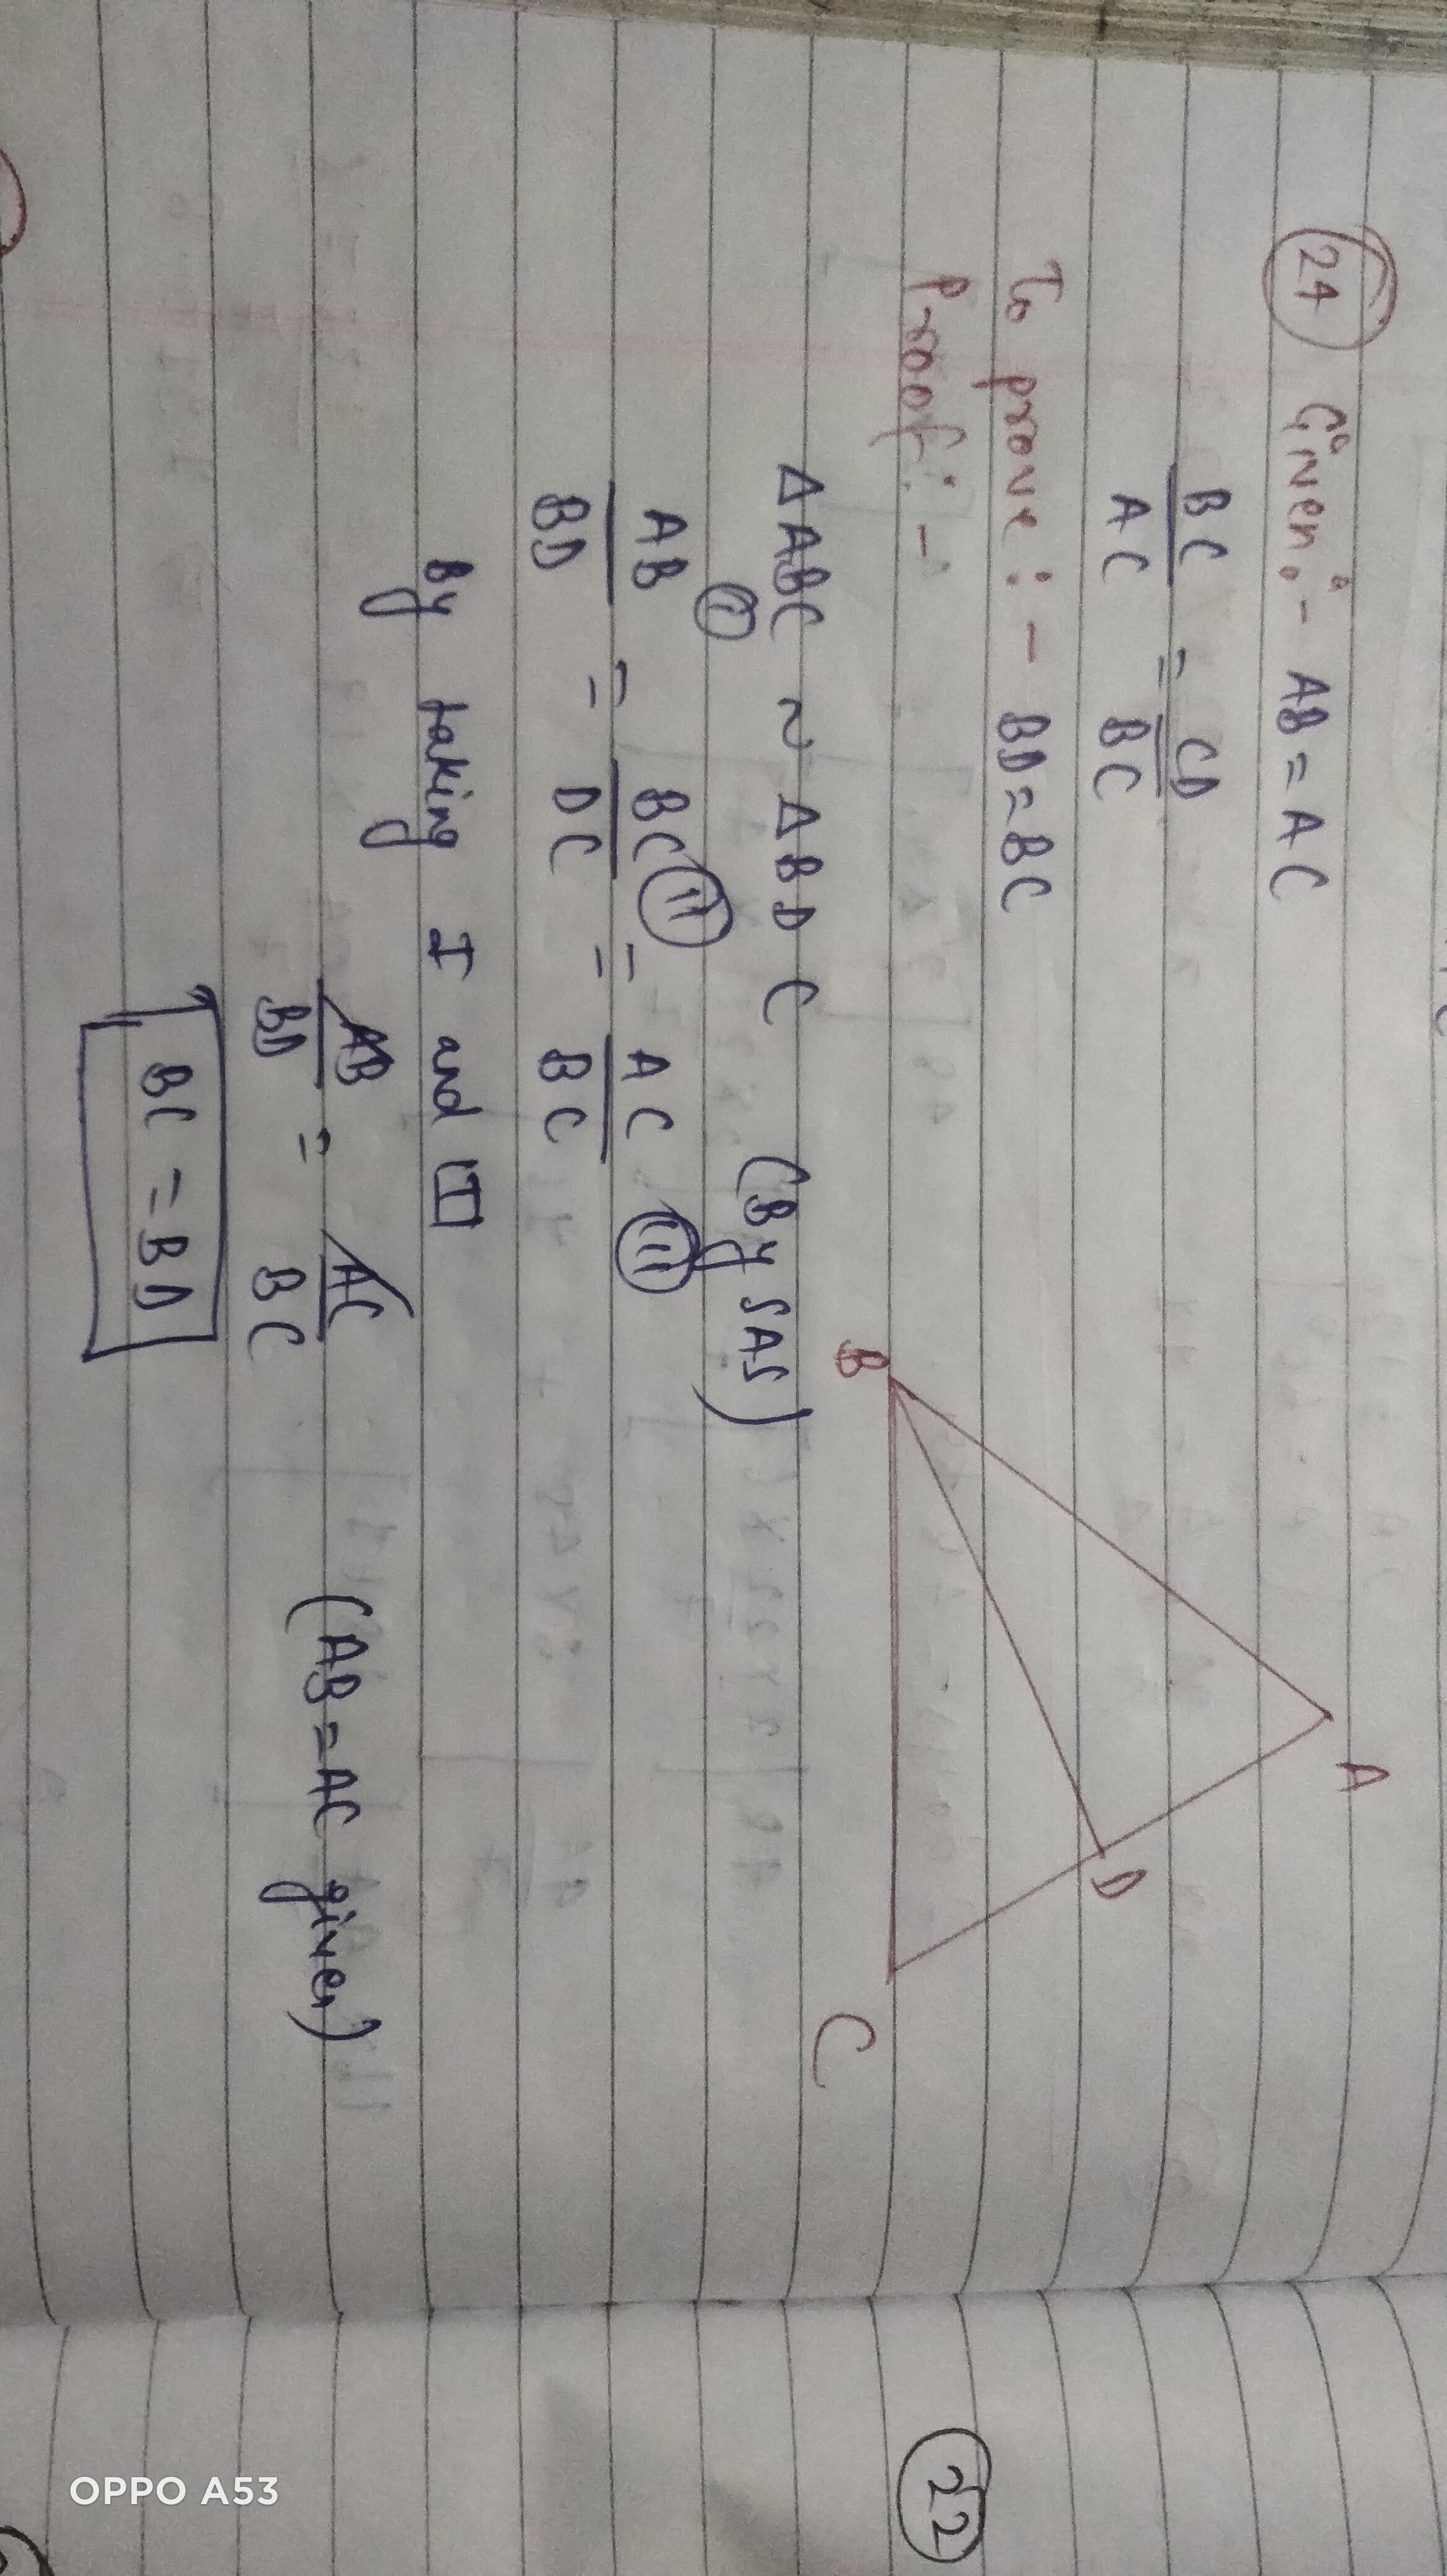 24 Given:- AB = AC
BC/AC = CD/BC
To prove:- BD = BC
Proof:-
△ABC ~ △BDC (By SAS)
AB/BD (I) = BC/DC (II) = AC/BC (III)
By taking I and III
AB/BD = AC/BC (AB = AC given)
BC = BD
A
B
D
C
22
OPPO A53